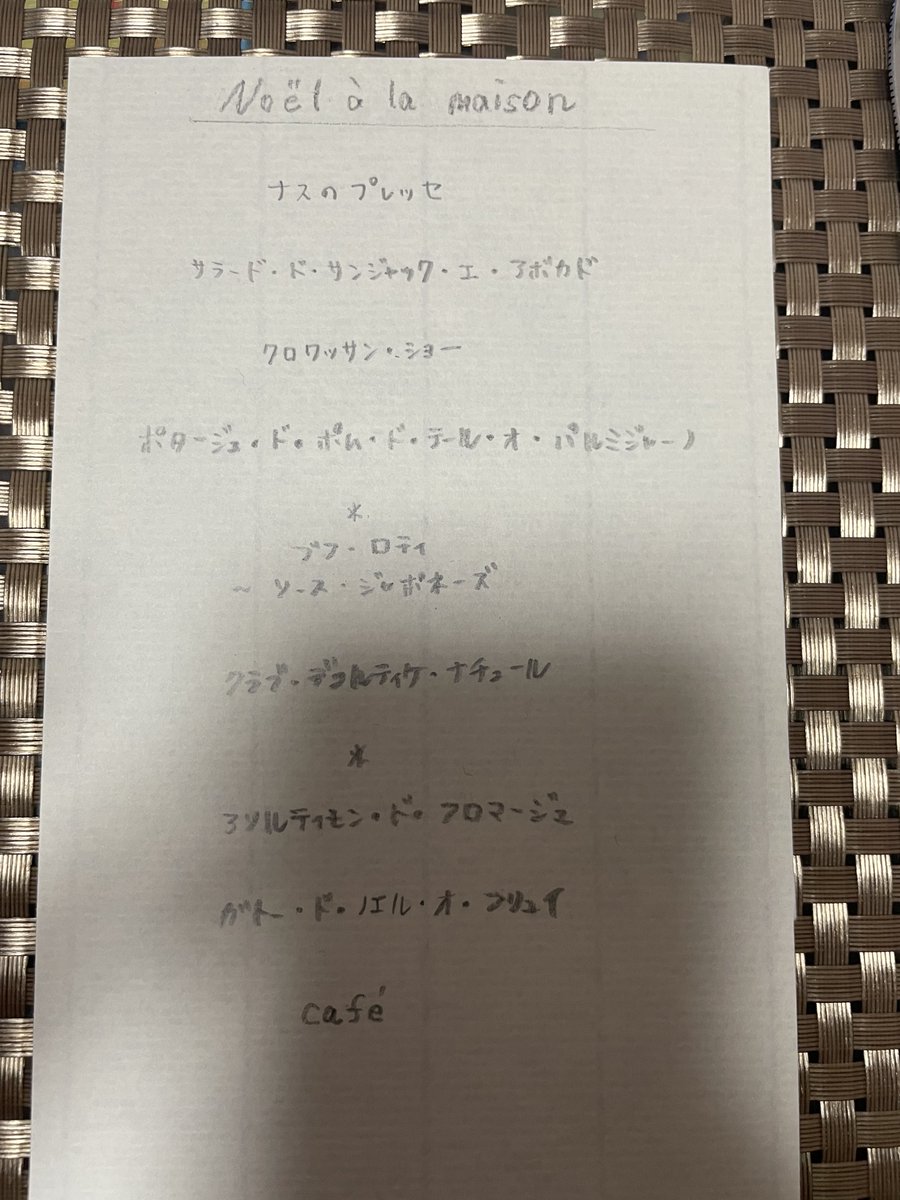 Noël à la maison
ナスのプレッセ
サラード・ド・サンジャック・エ・アボカド
クロワッサン・ショー
ポタージュ・ド・ポム・ド・テール・オ・パルミジャーノ
*
ブフ・ロティ
~ ソース・ジャポネーズ
クラブ・デコルティケ・ナチュール
*
アソルティモン・ド・フロマージュ
ガトー・ド・ノエル・オ・フリュイ
café